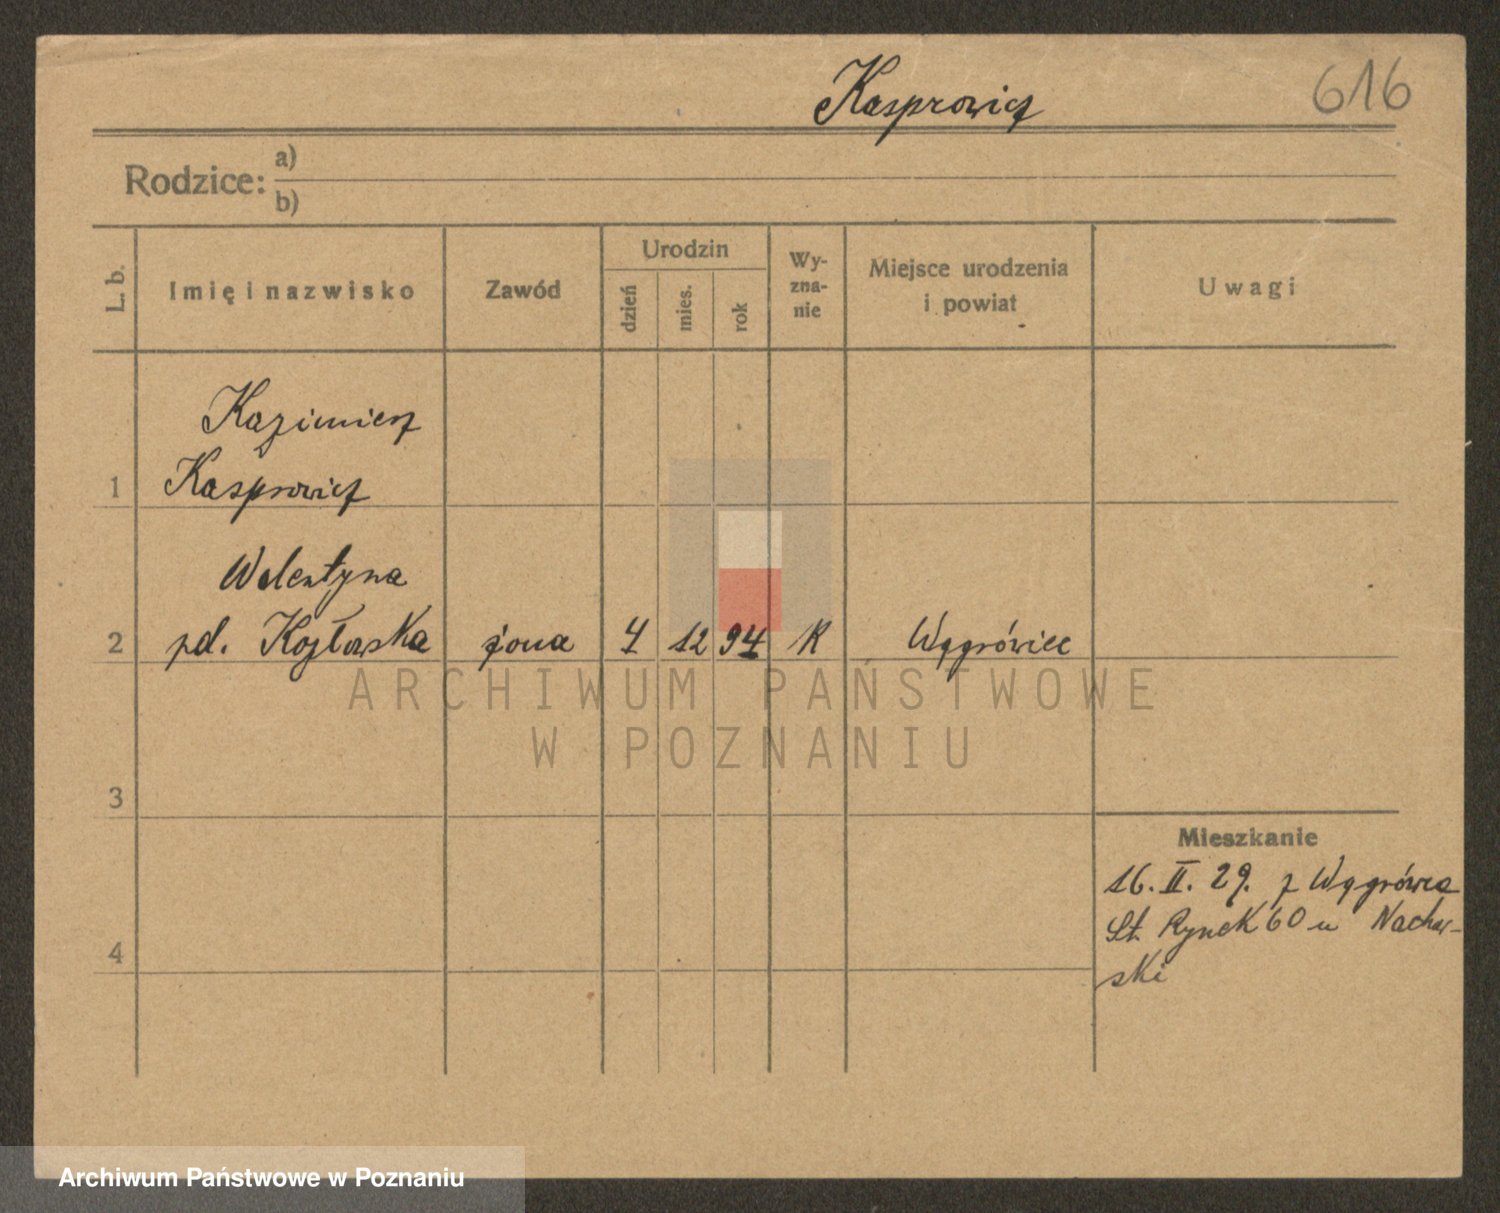 Kasprowicz
616
Rodzice: a)
b)
L. b.
Imię i nazwisko
Zawód
Urodzin
dzień
mies.
rok
Wy-
zna-
nie
Miejsce urodzenia
i powiat
Uwagi
Kazimierz
1 Kasprowicz
Walentyna
2 zd. Kozłowska żona 4 12 94 K Wągrówiec
3
4
Mieszkanie
16. II. 29. z Wągrówca
St. Rynek 60 u Nachar-
ski
ARCHIWUM PAŃSTWOWE
W POZNANIU
Archiwum Państwowe w Poznaniu